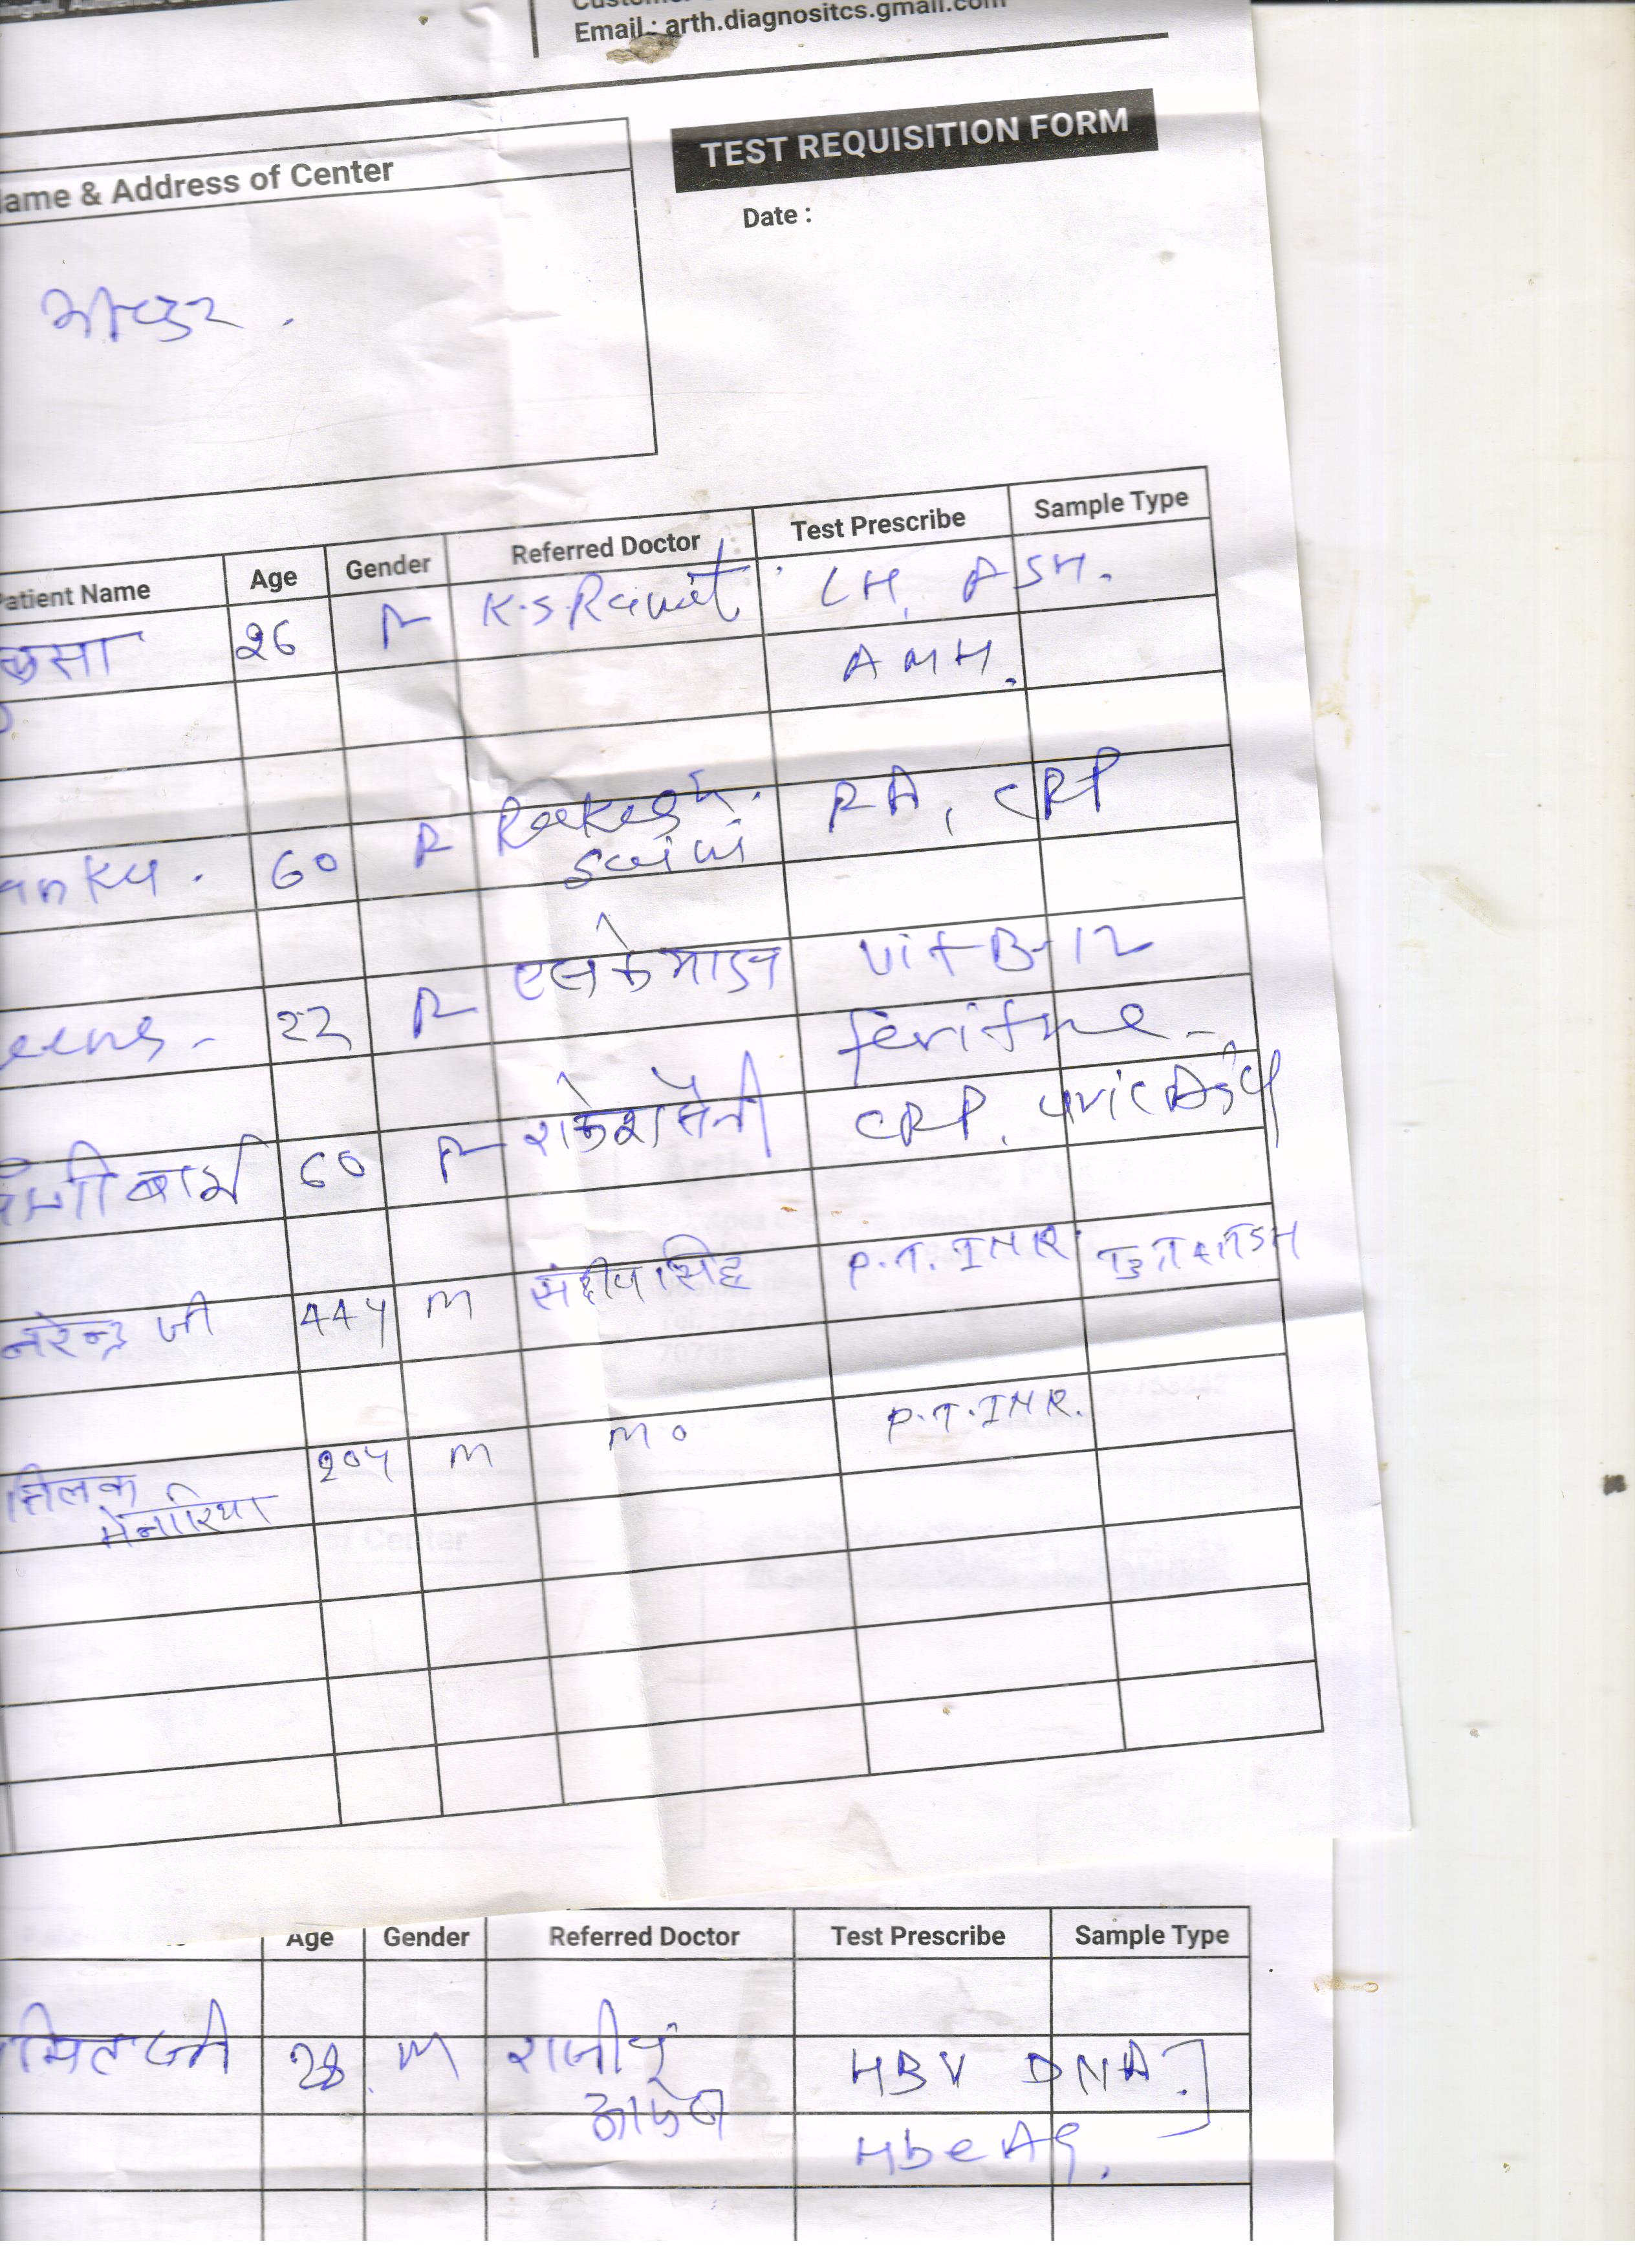 Email : arth.diagnositcs.gmail.com
TEST REQUISITION FORM
ame & Address of Center
Date :
Patient Name Age Gender Referred Doctor Test Prescribe Sample Type
26 F K.S. Rawat LH, ASH.
AMH.
60 F Rakesh RA, CRP
saini
22 F Vit B-12
feritine -
60 F राकेश सैनी CRP, uric Acid
नरेन्द्र जी 44y M संदीप सिंह P.T. INR T3 T4 TSH
तिलक 20y M MO P.T. INR.
मेनारिया
Age Gender Referred Doctor Test Prescribe Sample Type
28 M HBV DNA
HbeAg.